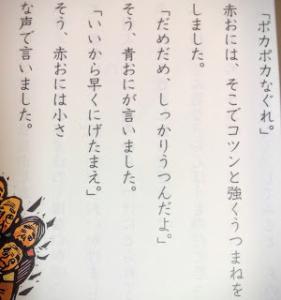 「ポカポカなぐれ。」
赤おには、そこでコツンと強くうつまねを
しました。
「だめだめ、しっかりうつんだよ。」
そう、青おにが言いました。
「いいから早くにげたまえ。」
そう、赤おには小さ
な声で言いました。